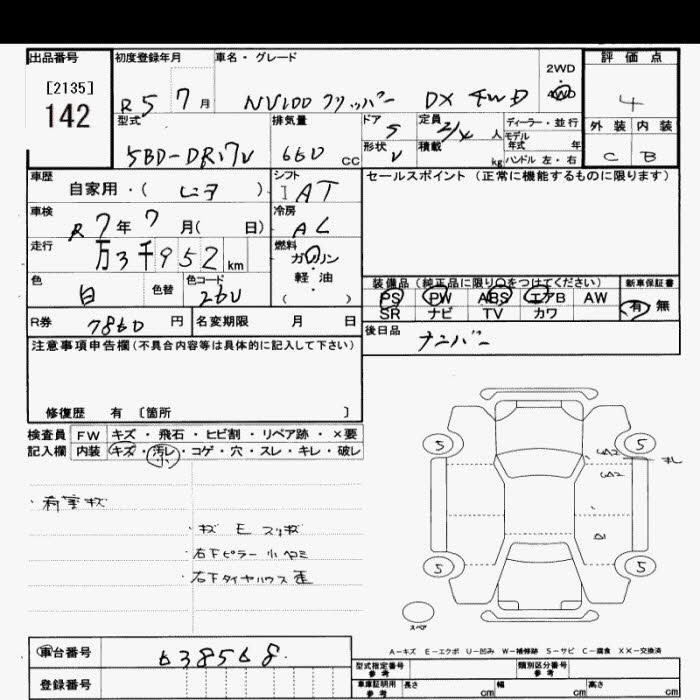 出品番号
[2135]
142
初度登録年月
R5 7月
車名・グレード
NV100 クリッパー DX 4WD
2WD
4WD
評価点
4
外装 内装
C B
型式
5BD-DR17V
排気量
660 cc
ドア
5
形状
V
定員
2/4 人
積載
kg
ディーラー・並行
モデル
年式 年
ハンドル 左・右
車歴
自家用・( )
シフト
I AT
車検
R 7年 7月( 日)
冷房
AC
走行
万3千952 km
燃料
ガソリン
・
軽油
( )
色
白
色替
色コード
26U
R券
7860 円
名変期限 月 日
セールスポイント (正常に機能するものに限ります)
装備品 (純正品に限り○をつけてください)
PS PW ABS エアB AW
SR ナビ TV カワ
新車保証書
有 無
後日品
ナンバー
注意事項申告欄(不具合内容等は具体的に記入して下さい)
修復歴 有 〔箇所 〕
検査員 FW キズ・飛石・ヒビ割・リペア跡・×要
記入欄 内装 キズ・汚レ・コゲ・穴・スレ・キレ・破レ
・荷室キズ
・キズ E スリキズ
・右下ピラー 小ヘコミ
・右下タイヤハウス 歪
5 5
5 5
スペア
A-キズ E-エクボ U-凹み W-補修跡 S-サビ C-腐食 XX-交換済
車台番号
638568
登録番号
型式指定番号
参考
類別区分番号
参考
車庫証明用
参考
長さ cm 幅 cm 高さ cm